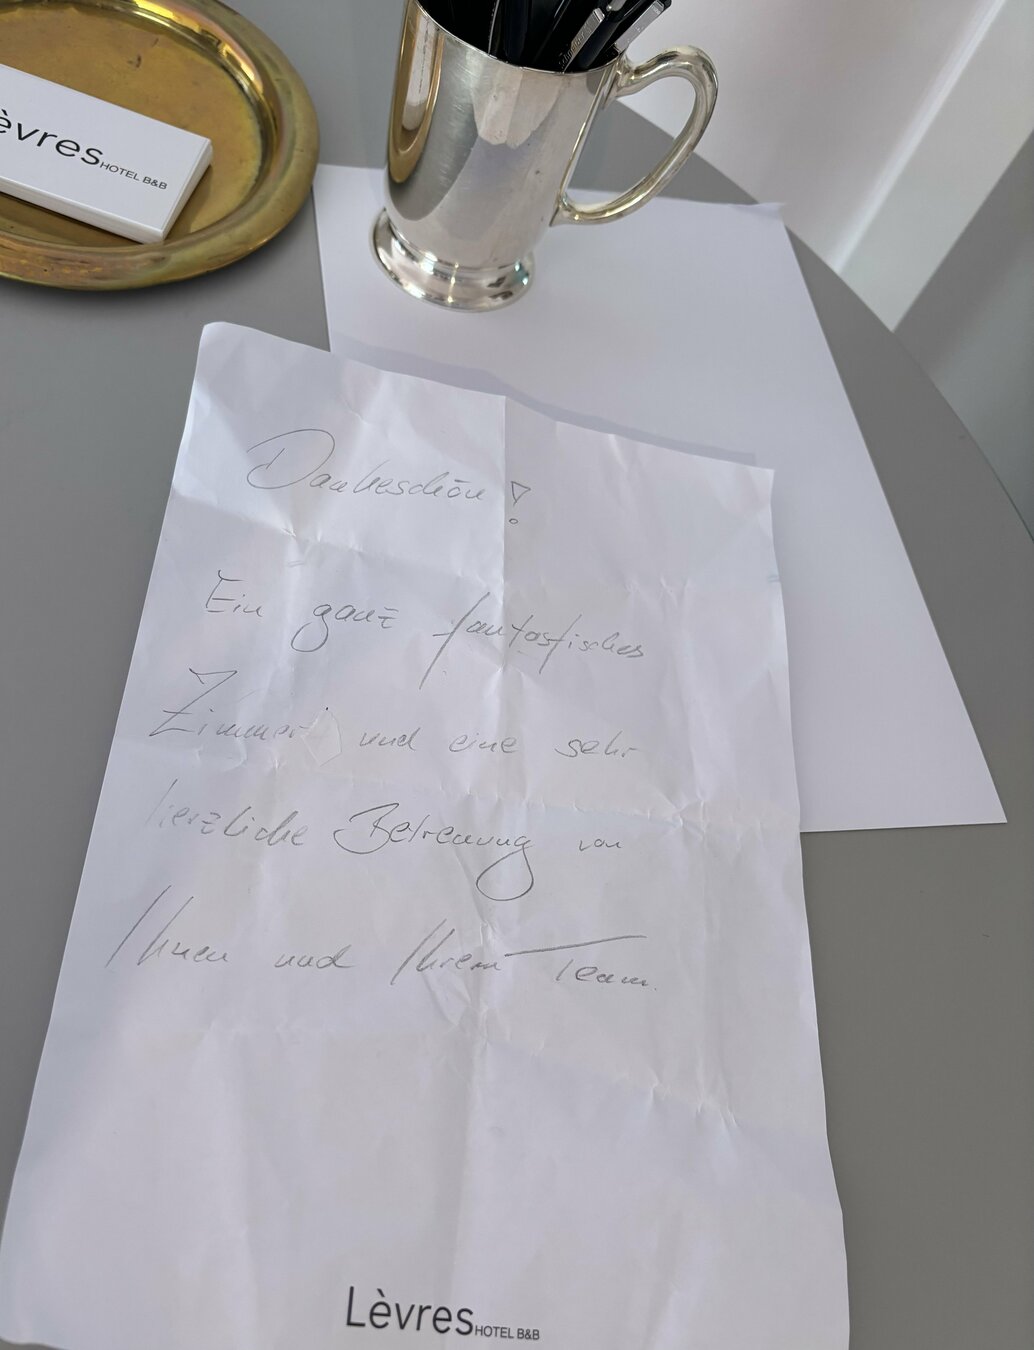 èvres HOTEL B&B
Dankeschön!
Ein ganz fantastisches
Zimmer und eine sehr
herzliche Betreuung von
Ihnen und Ihrem Team.
Lèvres HOTEL B&B